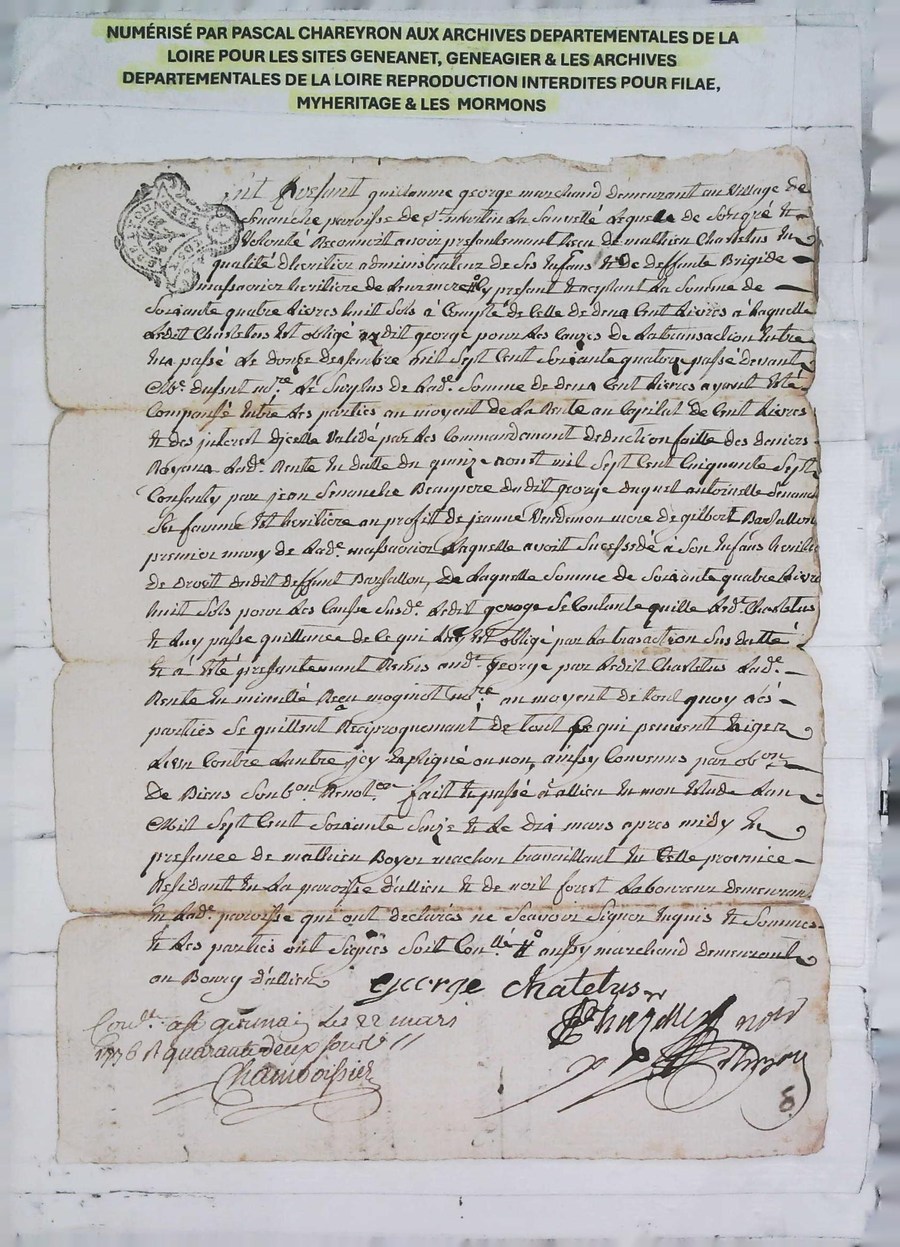 NUMÉRISÉ PAR PASCAL CHAREYRON AUX ARCHIVES DEPARTEMENTALES DE LA
LOIRE POUR LES SITES GENEANET, GENEAGIER & LES ARCHIVES
DEPARTEMENTALES DE LA LOIRE REPRODUCTION INTERDITES POUR FILAE,
MYHERITAGE & LES MORMONS
guillaume george marchand demeurant au village de
Senanche paroisse de St la Sauvetté laquelle de son gré &
volonté Reconnoit avoir presentement Receu de mathieu Chastelus en
qualité d'heritier administrateur de ses Enfans & de deffunte Brigide
heritiere de leur mere icy present & aceptant la Somme de
Soixante quatre livres huit sols à Compte de celle de deux Cent livres à laquelle
ledit Chastelus Est obligé audit george pour les causes de la transaction Entre
Eux passé le douze desembre mil sept Cent soixante quatorze passé devant
Me no.re le Surplus de lad.e Somme de deux Cent livres ayant Eté
Compansé Entre les parties au moyen de la Rente au Capital de Cent livres
& des interest d'jcelle validé par les Commandement deduction faitte des deniers
Royaux lad.e Rente En datte du quinze aoust mil Sept Cent Cinquante Sept
Consentu par jean Senanche Beaupere dudit george duquel antoinette Senanche
Sa famme Est heritiere au profit de jeanne mere de gilbert Barsallon
premier mary de lad.e laquelle avoit Sucessedé à son Enfans heritier
de Droit dudit deffunt Barsallon, de laquelle Somme de Soixante quatre livres
huit sols pour les Causse Susd.e ledit george Se Contante quitte led.t Chastelus
& luy passe quittance de ce qui Est obligé par la trasaction Sus datté
& à Eté presentement Remis aud.t george par ledit Chastelus lad.e
Rente En minutte no.re au moyen de tout quoy les
parties Se quittent Reciproquement de tout Ce qui peuvent Exiger
l'Un Contre l'autre jcy Expliqué ou non, ainssy Convenus par ob.on
De Biens fait & passé à allieu En mon Etude l'an
Mil Sept Cent Soixante Seize & le dix mars apres midy En
presence de mathieu Boyer machon travaillant En Cette province
Residant En La paroisse d'allieu & de noil forest Laboureur demeurant
En lad.e paroisse qui ont declarés ne Scavoir Signer Enquis & Sommes
& les parties ont Signés ausy marchand demeurant
au Bourg d'allieu
george chatelus
les 22 mars
1776 R quarante deux sous
Chamboissier
8